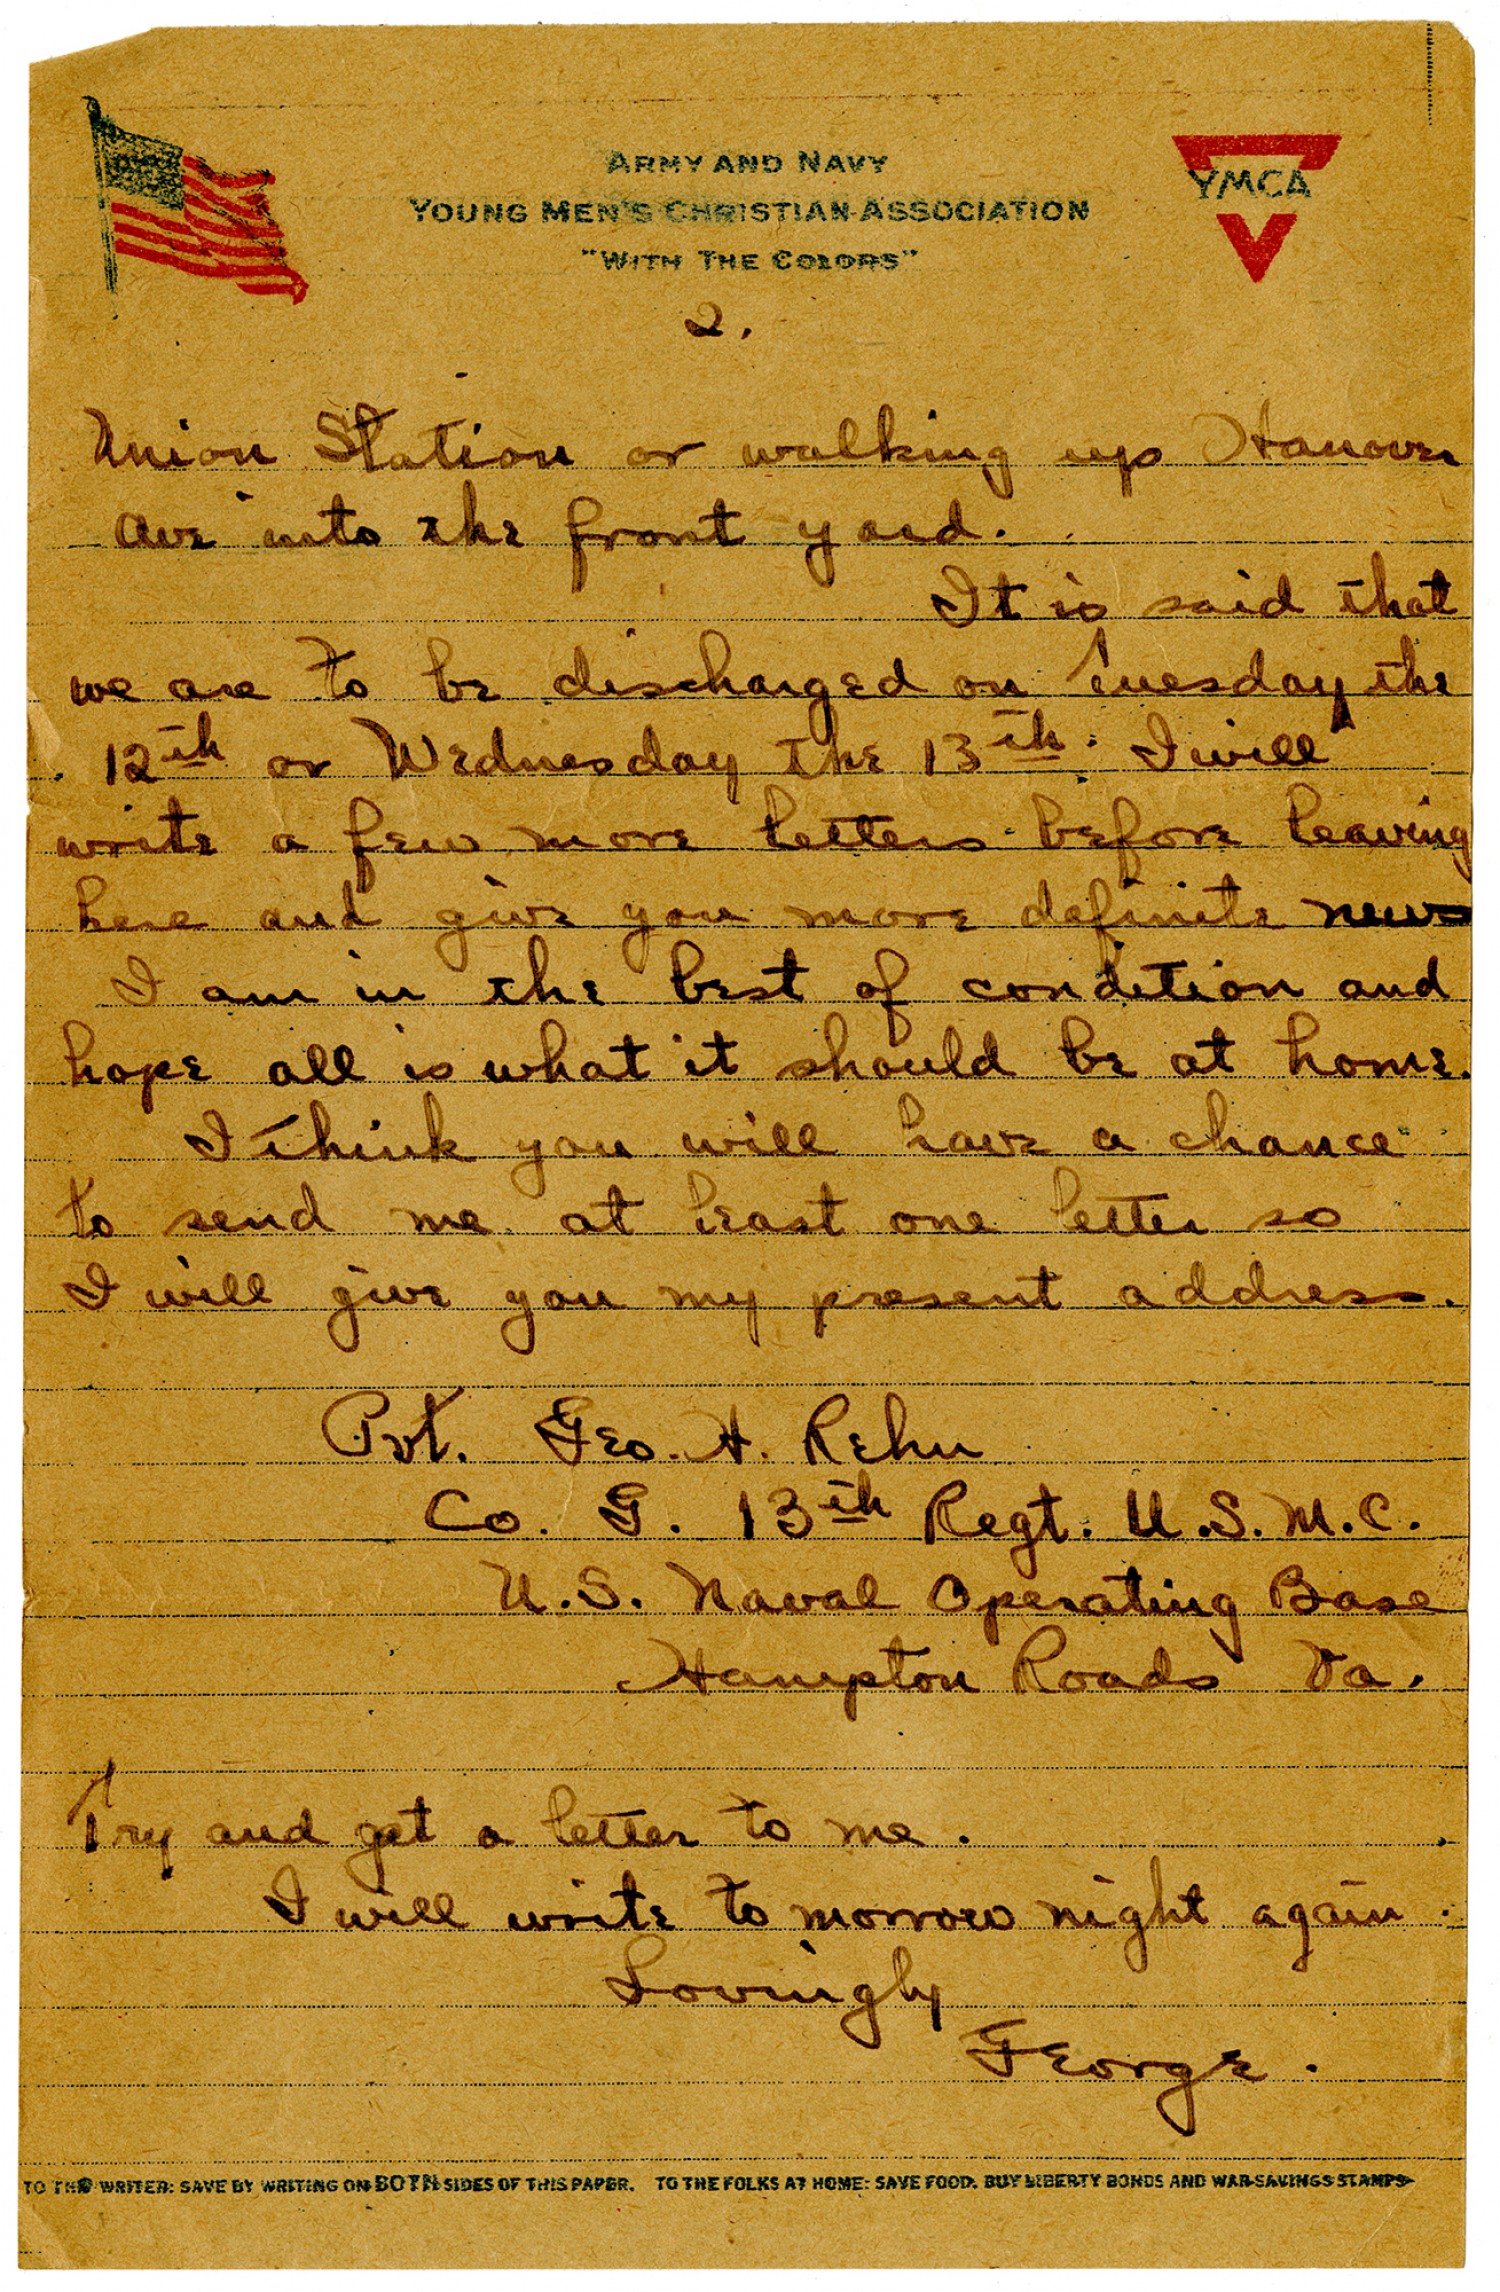 ARMY AND NAVY
YOUNG MEN'S CHRISTIAN ASSOCIATION
"WITH THE COLORS"
YMCA
2.
Union Station or walking up Hanover
Ave into the front yard.
It is said that
we are to be discharged on Tuesday the
12th or Wednesday the 13th. I will
write a few more letters before leaving
here and give you more definite news
I am in the best of condition and
hope all is what it should be at home.
I think you will have a chance
to send me at least one letter so
I will give you my present address.
Pvt. Geo. H. Rehn
Co. G. 13th Regt. U.S.M.C.
U.S. Naval Operating Base
Hampton Roads Va.
Try and get a letter to me.
I will write to morrow night again.
Lovingly
George.
TO THE WRITER: SAVE BY WRITING ON BOTH SIDES OF THIS PAPER. TO THE FOLKS AT HOME: SAVE FOOD. BUY LIBERTY BONDS AND WAR SAVINGS STAMPS